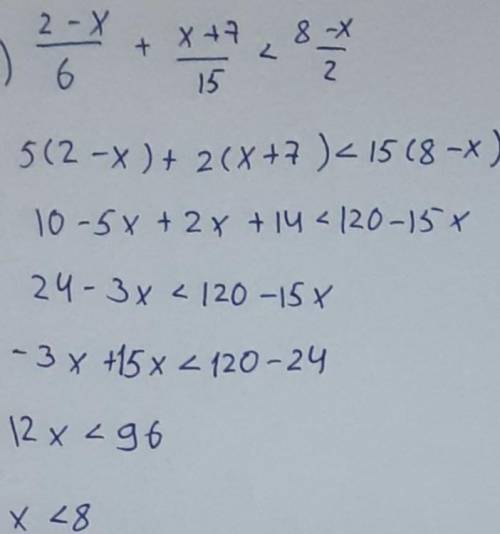 ) (2 - x)/6 + (x + 7)/15 < (8 - x)/2
5(2 - x) + 2(x + 7) < 15(8 - x)
10 - 5x + 2x + 14 < 120 - 15x
24 - 3x < 120 - 15x
-3x + 15x < 120 - 24
12x < 96
x < 8